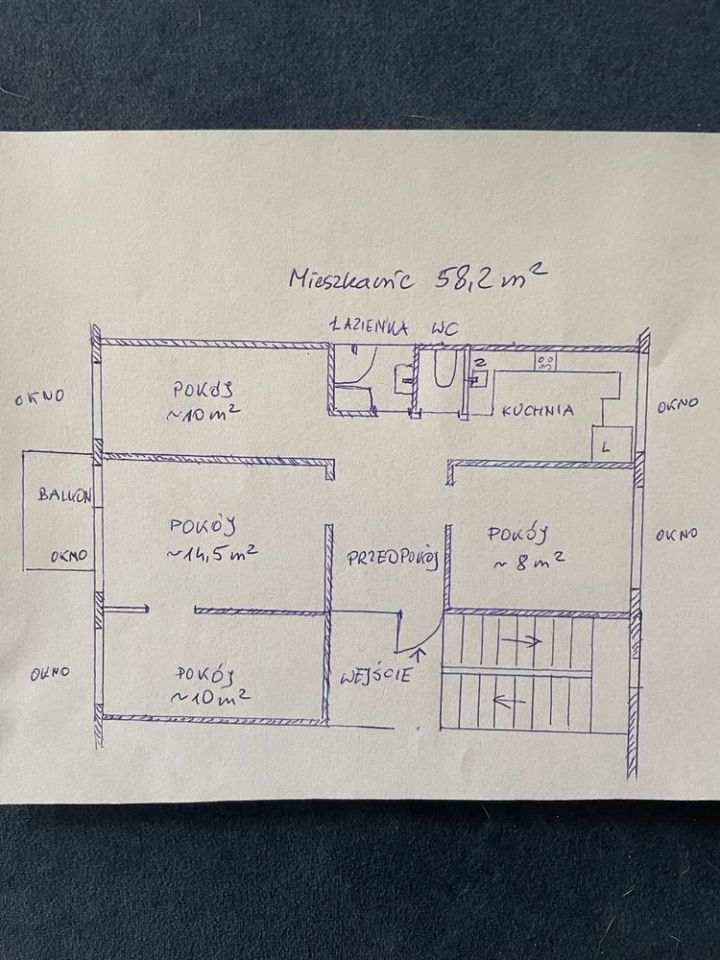 Mieszkanie 58,2 m²
ŁAZIENKA WC
OKNO
POKÓJ
~10 m²
2
KUCHNIA
OKNO
L
BALKON
OKNO
POKÓJ
~14,5 m²
PRZEDPOKÓJ
POKÓJ
~ 8 m²
OKNO
OKNO
POKÓJ
~10 m²
WEJŚCIE